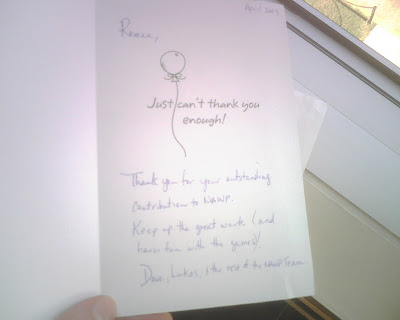 April
Renee,
Just can't thank you
enough!
Thank you for your outstanding
contribution to NAWP.
Keep up the great work (and
have fun with the games)!
Dave, Lukas, & the rest of the NAWP Team